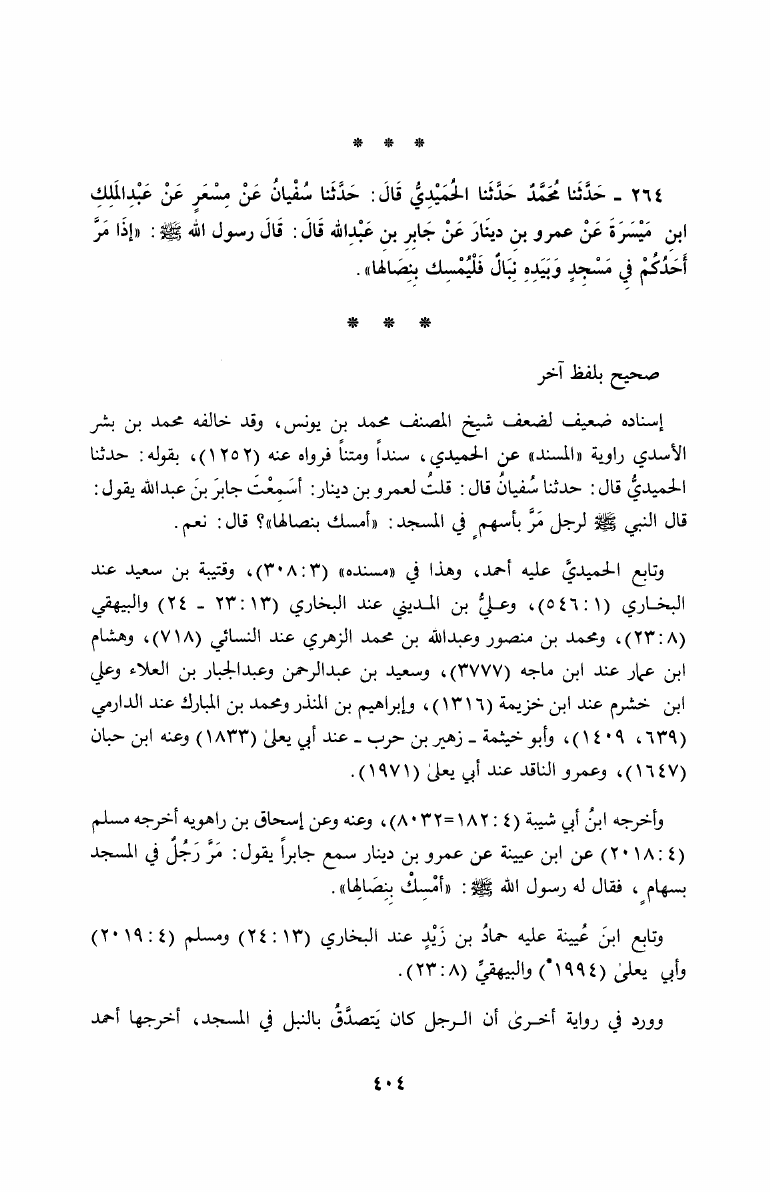 * * *
٢٦٤ - حَدَّثنا مُحَمَّدٌ حَدَّثَنا الحُمَيْدِيُّ قَالَ: حَدَّثَنا سُفْيانُ عَنْ مِسْعَرٍ عَنْ عَبْدِالمَلِكِ
ابنِ مَيْسَرَةَ عَنْ عمرو بنِ دينَارَ عَنْ جَابِرِ بنِ عَبْدِالله قَالَ: قَالَ رسول الله ﷺ: «إذَا مَرَّ
أَحَدُكُمْ فِي مَسْجِدٍ وَبَيَدِهِ نِبَالٌ فَلْيُمْسِك بِنِصَالها».
* * *
صحيح بلفظ آخر
إسناده ضعيف لضعف شيخ المصنف محمد بن يونس، وقد خالفه محمد بن بشر
الأسدي راوية «المسند» عن الحميدي، سنداً ومتناً فرواه عنه (١٢٥٢)، بقوله: حدثنا
الحميديُّ قال: حدثنا سُفيانُ قال: قلتُ لعمرو بن دينار: أسَمِعْتَ جابرَ بنَ عبدالله يقول:
قال النبي ﷺ لرجل مَرَّ بأسهمٍ في المسجد: «أمسك بنصالها»؟ قال: نعم.
وتابع الحميديَّ عليه أحمد، وهذا في «مسنده» (٣٠٨:٣)، وقتيبة بن سعيد عند
البخاري (٥٤٦:١)، وعليُّ بن المديني عند البخاري (٢٣:١٣ - ٢٤) والبيهقي
(٢٣:٨)، ومحمد بن منصور وعبدالله بن محمد الزهري عند النسائي (٧١٨)، وهشام
ابن عمار عند ابن ماجه (٣٧٧٧)، وسعيد بن عبدالرحمن وعبدالجبار بن العلاء وعلي
ابن خشرم عند ابن خزيمة (١٣١٦)، وإبراهيم بن المنذر ومحمد بن المبارك عند الدارمي
(٦٣٩، ١٤٠٩)، وأبو خيثمة - زهير بن حرب - عند أبي يعلىٰ (١٨٣٣) وعنه ابن حبان
(١٦٤٧)، وعمرو الناقد عند أبي يعلىٰ (١٩٧١).
وأخرجه ابنُ أبي شيبة (١٨٢:٤=٨٠٣٢)، وعنه وعن إسحاق بن راهويه أخرجه مسلم
(٢٠١٨:٤) عن ابن عيينة عن عمرو بن دينار سمع جابراً يقول: مَرَّ رَجُلٌ في المسجد
بسهامٍ، فقال له رسول الله ﷺ: «أمْسِكْ بِنِصَالِها».
وتابع ابنَ عُيينة عليه حمادُ بن زَيْدٍ عند البخاري (٢٤:١٣) ومسلم (٢٠١٩:٤)
وأبي يعلىٰ (١٩٩٤*) والبيهقيِّ (٢٣:٨).
وورد في رواية أخرىٰ أن الرجل كان يَتصدَّقُ بالنبل في المسجد، أخرجها أحمد
٤٠٤